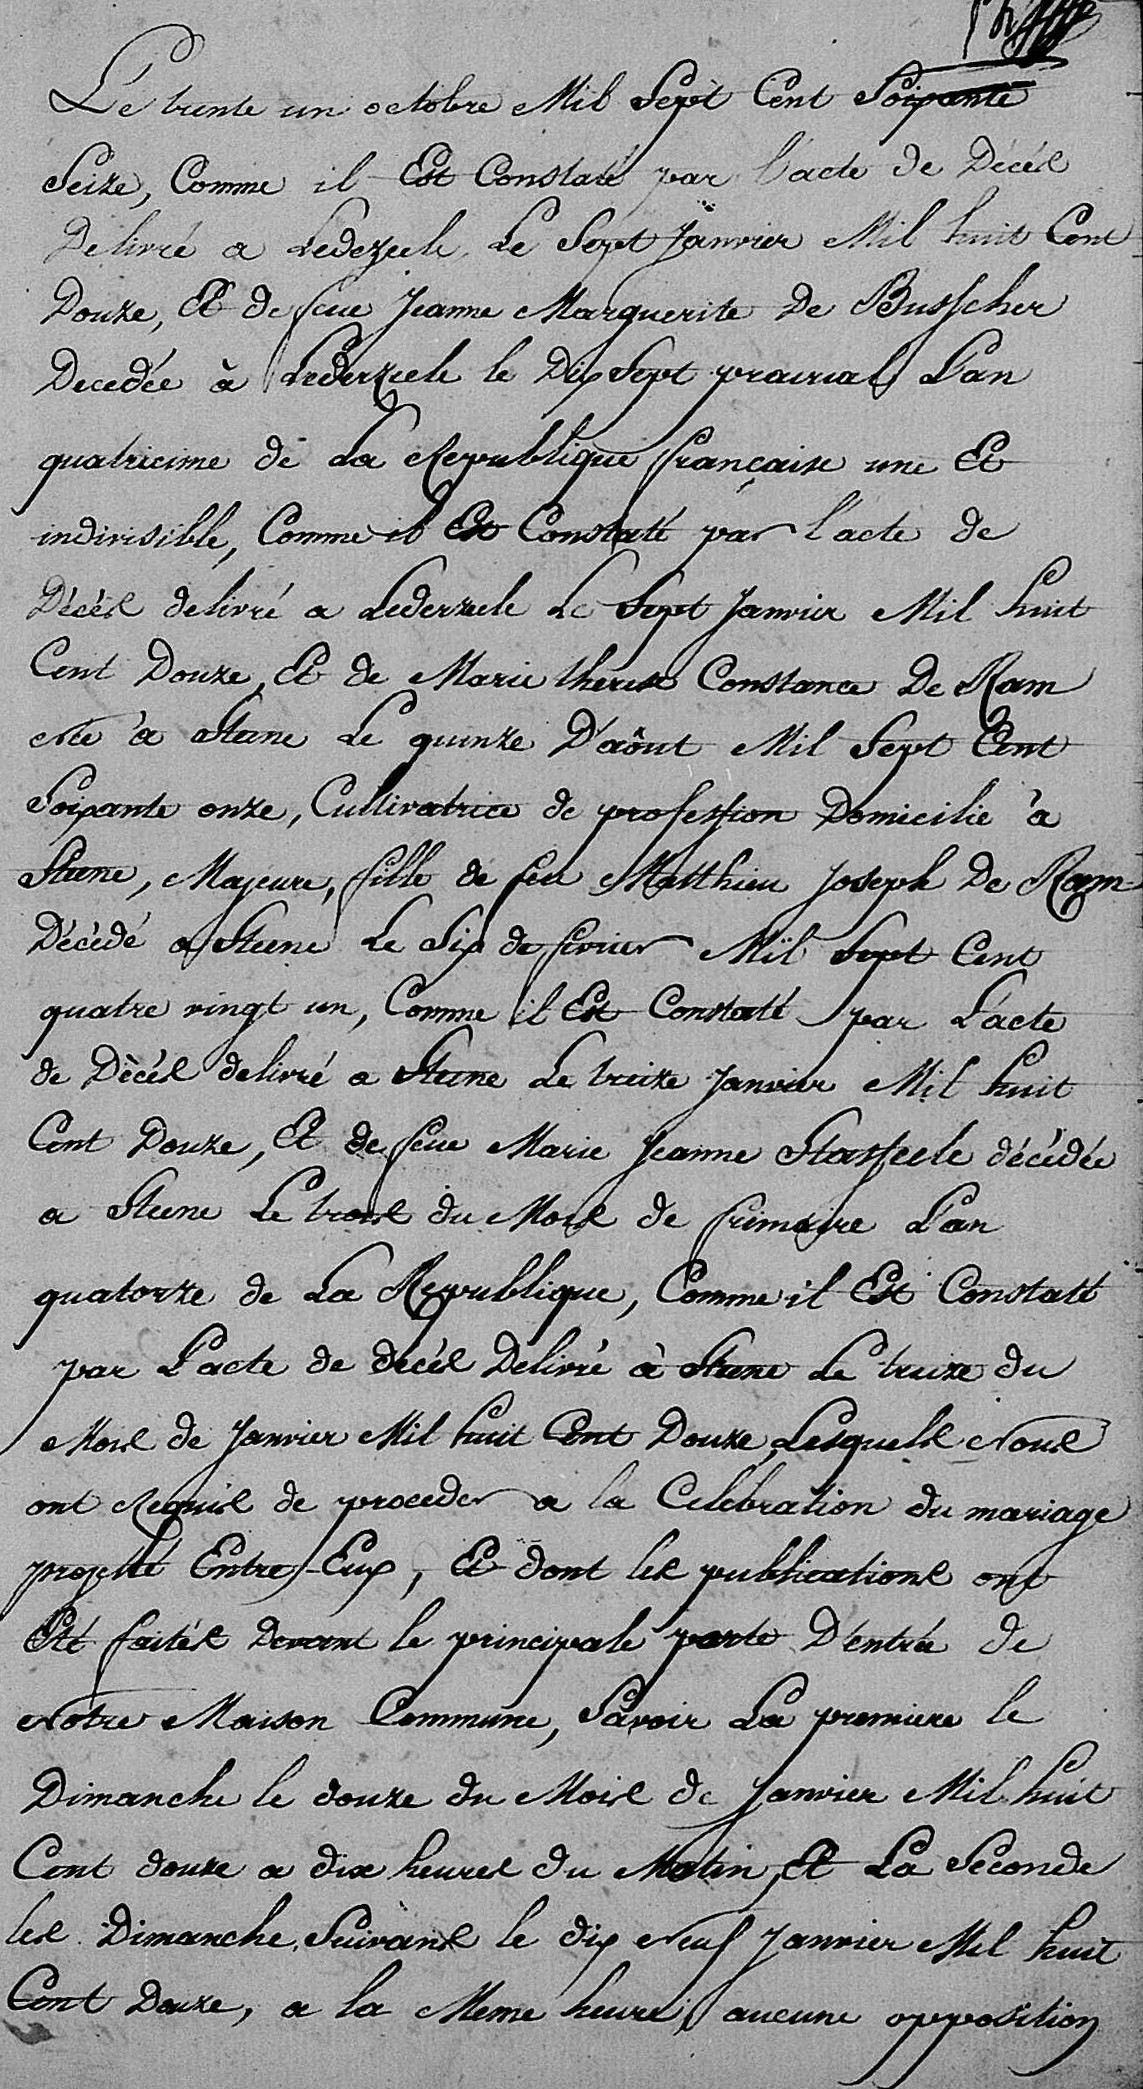 Le trente un octobre Mil Sept Cent Soixante
Seize, Comme il Est Constaté par l'acte de Décés
Delivré a Lederzeele, Le Sept Janvier Mil huit Cent
Douze, Et de feue Jeanne Marguerite De Busscher
Decedée à Lederzeele le Dix Sept prairial L'an
quatrieime de La Republique française une Et
indivisible, Comme il Est Constaté par l'acte de
Décés delivré a Lederzeele Le Sept Janvier Mil huit
Cent Douze, Et de Marie therese Constance De Ram
Née à Steene Le quinze D'aôut Mil Sept Cent
Soixante onze, Cultivatrice de profession Domicilié à
Steene, Majeure, fille de feu Matthieu Joseph De Ram
Décédé a Steene Le Six de fevrier Mil Sept Cent
quatre vingt un, Comme il Est Constaté par L'acte
de Décés delivré a Steene Le treize Janvier Mil huit
Cent Douze, Et de feue Marie Jeanne Stasseele décédée
a Steene Le trois du Mois de frimaire L'an
quatorze de La Republique, Comme il Est Constaté
par L'acte de decés Delivré à Steene Le treize du
Mois de Janvier Mil huit Cent Douze, Lesquels Nous
ont Requis de proceder a la Celebration du mariage
projetté Entre-Eux, Et dont les publications ont
Eté faités Devant le principale porte D'entrée de
Nôtre Maison Commune, Savoir La premiere le
Dimanche le douze du Mois de Janvier Mil huit
Cent douze a dix heures du Matin, Et La Seconde
les Dimanche Suivans le dix Neuf Janvier Mil huit
Cent Douze, a la Meme heure, aucune opposition